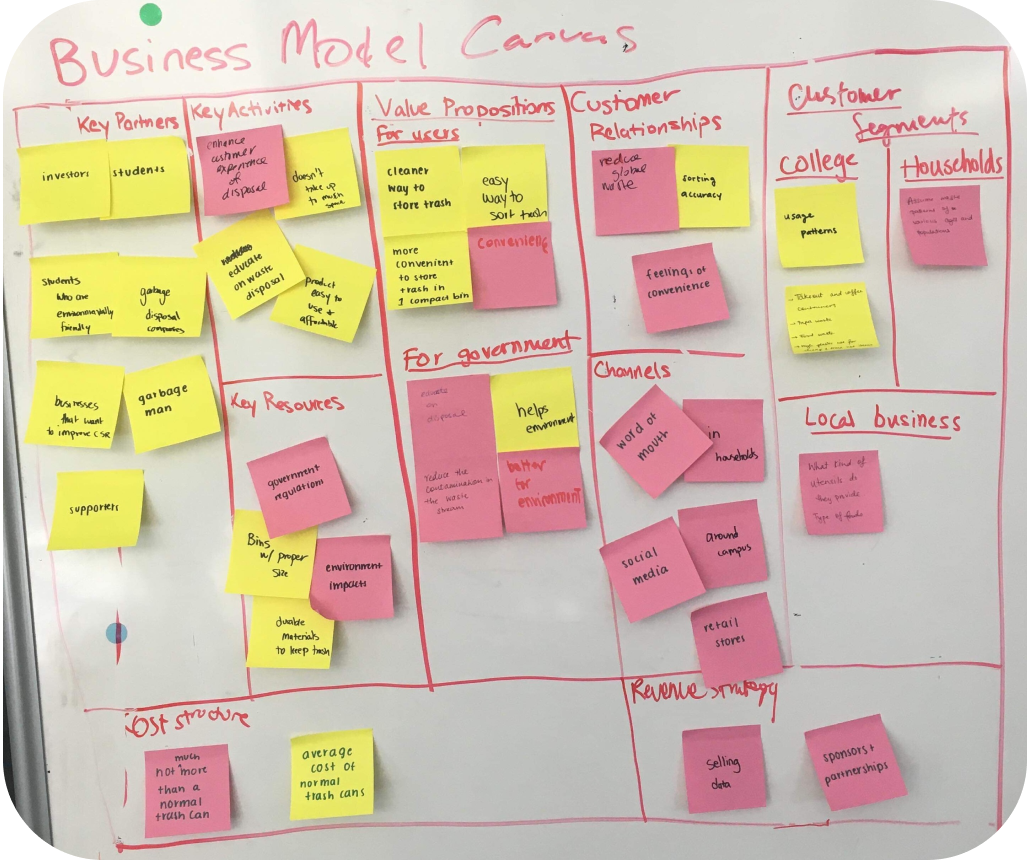 Business Model Canvas
Key Partners
investors
students
students
who are
environmentally
friendly
garbage
disposal
companies
businesses
that want
to improve CSR
garbage
man
supporters
Key Activities
enhance
customer
experience
of
disposal
doesn't
take up
to much
space
educate
on waste
disposal
product
easy to
use &
affordable
Key Resources
government
regulations
Bins
w/ proper
size
environment
impacts
durable
materials
to keep trash
Value Propositions
for users
cleaner
way to
store trash
easy
way to
sort trash
more
convenient
to store
trash in
1 compact bin
convenience
For government
on
disposal
reduce the
contamination in
the waste
stream
helps
environment
better
for
environment
Customer
Relationships
reduce
global
waste
sorting
accuracy
feelings of
convenience
Channels
word of
mouth
in
households
social
media
around
campus
retail
stores
Customer
Segments
College
usage
patterns
- Takeout and coffee
containers
- Paper waste
- Food waste
Households
waste
patterns of
various ages and
populations
Local business
What kind of
utensils do
they provide
Type of foods
Cost structure
much
not ^ more
than a
normal
trash can
average
cost of
normal
trash cans
Revenue strategy
selling
data
sponsors +
partnerships